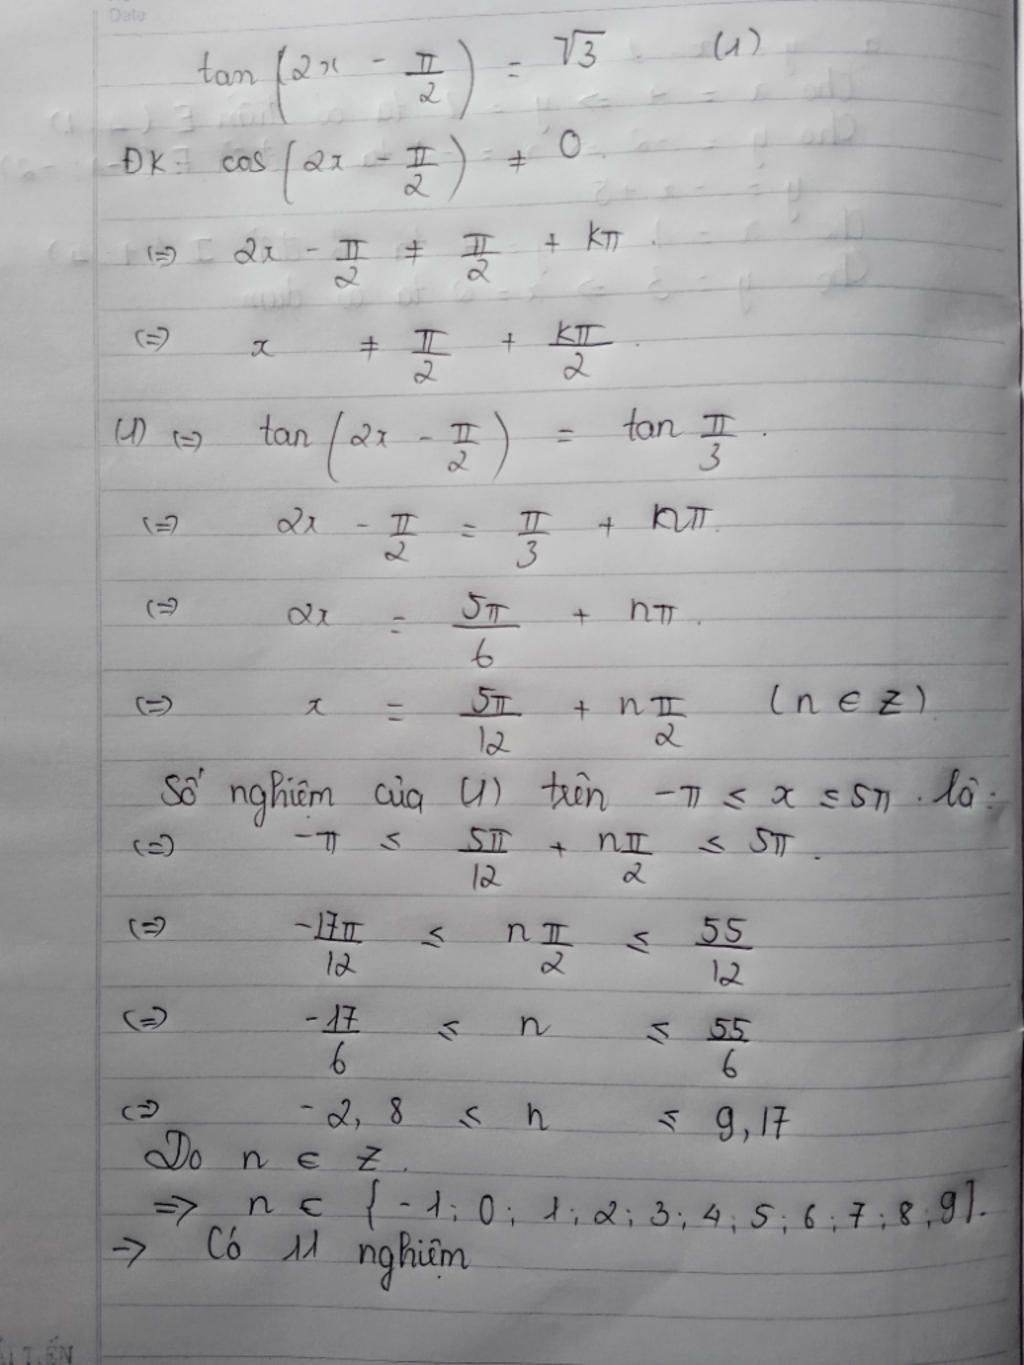 Date
tan(2x - π/2) = √3. (1)
ĐK: cos(2x - π/2) ≠ 0
(=) 2x - π/2 ≠ π/2 + kπ
(=) x ≠ π/2 + kπ/2.
(1) (=) tan(2x - π/2) = tan π/3.
(=) 2x - π/2 = π/3 + nπ.
(=) 2x = 5π/6 + nπ.
(=) x = 5π/12 + nπ/2 (n ∈ Z)
Số nghiệm của (1) trên -π ≤ x ≤ 5π. là:
(=) -π ≤ 5π/12 + nπ/2 ≤ 5π.
(=) -17π/12 ≤ nπ/2 ≤ 55/12
(=) -17/6 ≤ n ≤ 55/6
(=) -2,8 ≤ n ≤ 9,17
Do n ∈ Z.
=> n ∈ {-1; 0; 1; 2; 3; 4; 5; 6; 7; 8; 9}.
-> Có 11 nghiệm